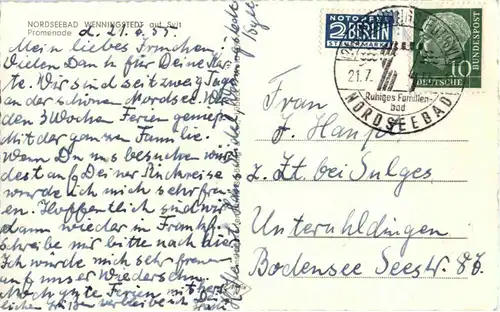 NORDSEEBAD WENNINGSTEDT auf Sylt
Promenade
d. 21.6.55.
Mein liebes Irmchen!
Vielen Dank für Deine Kar-
te. Wir sind seit zwei Tagen
an der schönen Nordsee. Wer-
den 3 Wochen Ferien genieß
Mit der ganzen Familie.
Wenn Du uns besuchen wür
dest auf Deiner Rückreise
würde ich mich sehr freu
en. Hoffentlich sind wir
dann wieder in Frankf.
Schreibe mir bitte nach hier
Ich würde mich sehr freuen
auf unser Wiedersehn.
Noch gute Ferien mit herz
lichen Grüßen verbleibe ich
NOTOPFER
2 BERLIN
STEUERMARKE
DEUTSCHE
10
21.7.
Ruhiges Familien-
bad
NORDSEEBAD
Frau
J. Hanf
z. Zt. bei Sulges
Unteruhldingen
Bodensee Seestr. 86.